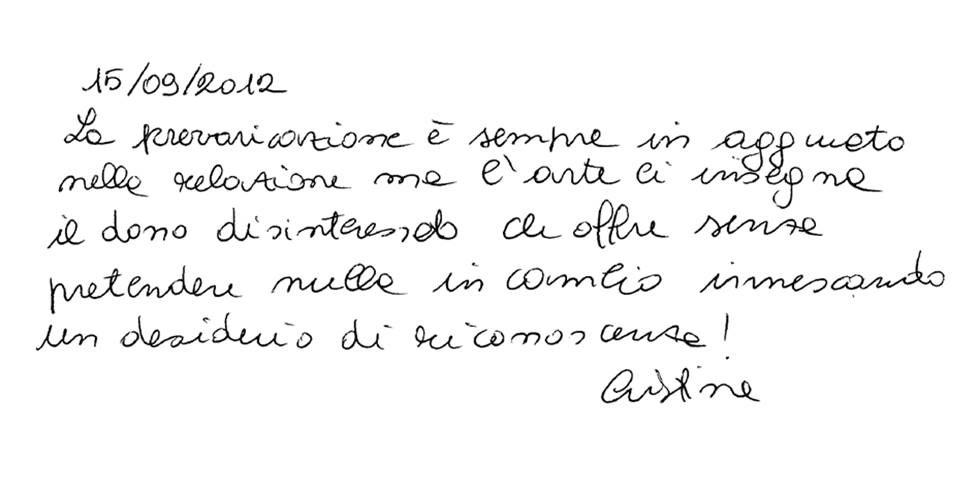 15/09/2012
La prevaricazione è sempre in agguato
nella relazione ma l'arte ci insegna
il dono disinteressato che offre senza
pretendere nulla in cambio innescando
un desiderio di riconoscenza!
Cristina